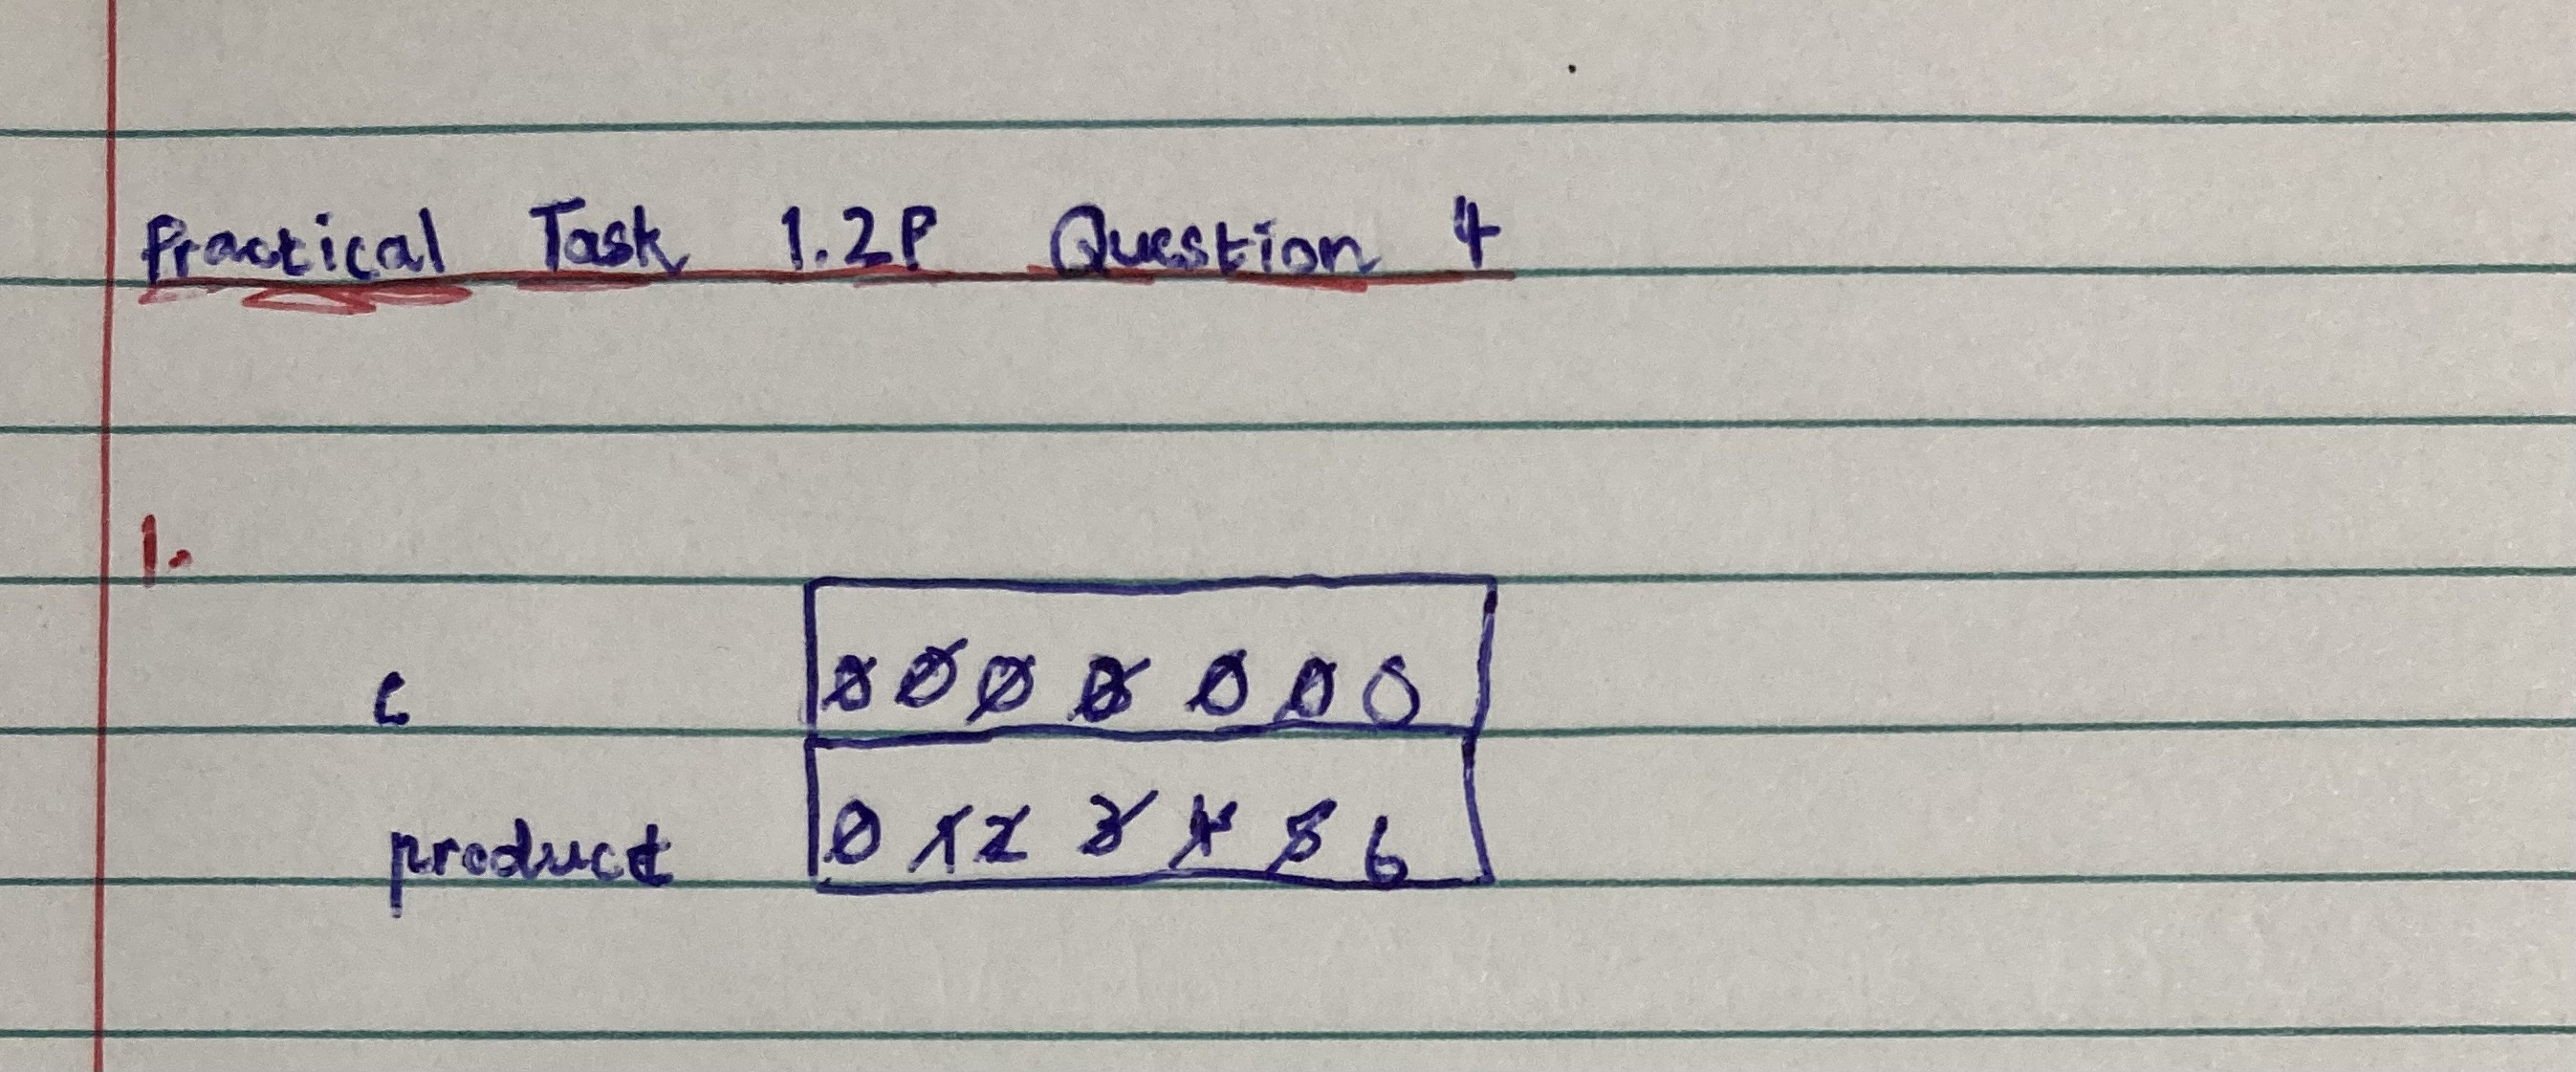 Practical Task 1.2P Question 4
1.
c 0 0 0 0 0 0 0
product 0 1 2 3 4 5 6